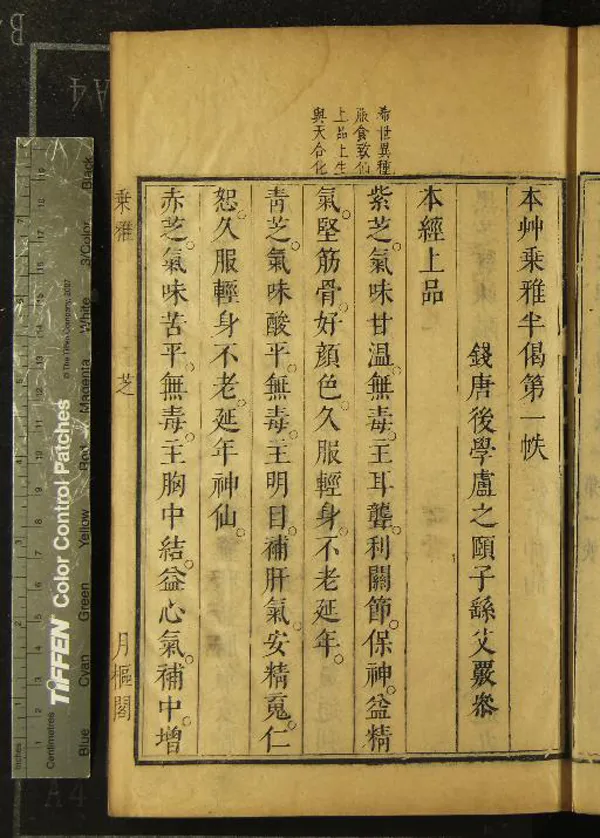 希世異種
服食致仙
上品上生
與天合化
本艸乘雅半偈第一帙
錢唐後學盧之頤子繇父覈參
本經上品
紫芝。氣味甘溫。無毒。主耳聾。利關節。保神。益精
氣。堅筋骨。好顏色。久服輕身。不老延年。
青芝。氣味酸平。無毒。主明目。補肝氣。安精䰟。仁
恕。久服輕身不老。延年神仙。
赤芝。氣味苦平。無毒。主胸中結。益心氣。補中。增
乘雅
芝
月樞閣
Inches
Centimetres
TIFFEN Color Control Patches
© The Tiffen Company, 2007
Blue
Cyan
Green
Yellow
Red
Magenta
White
3/Color
Black
A4
A4
B